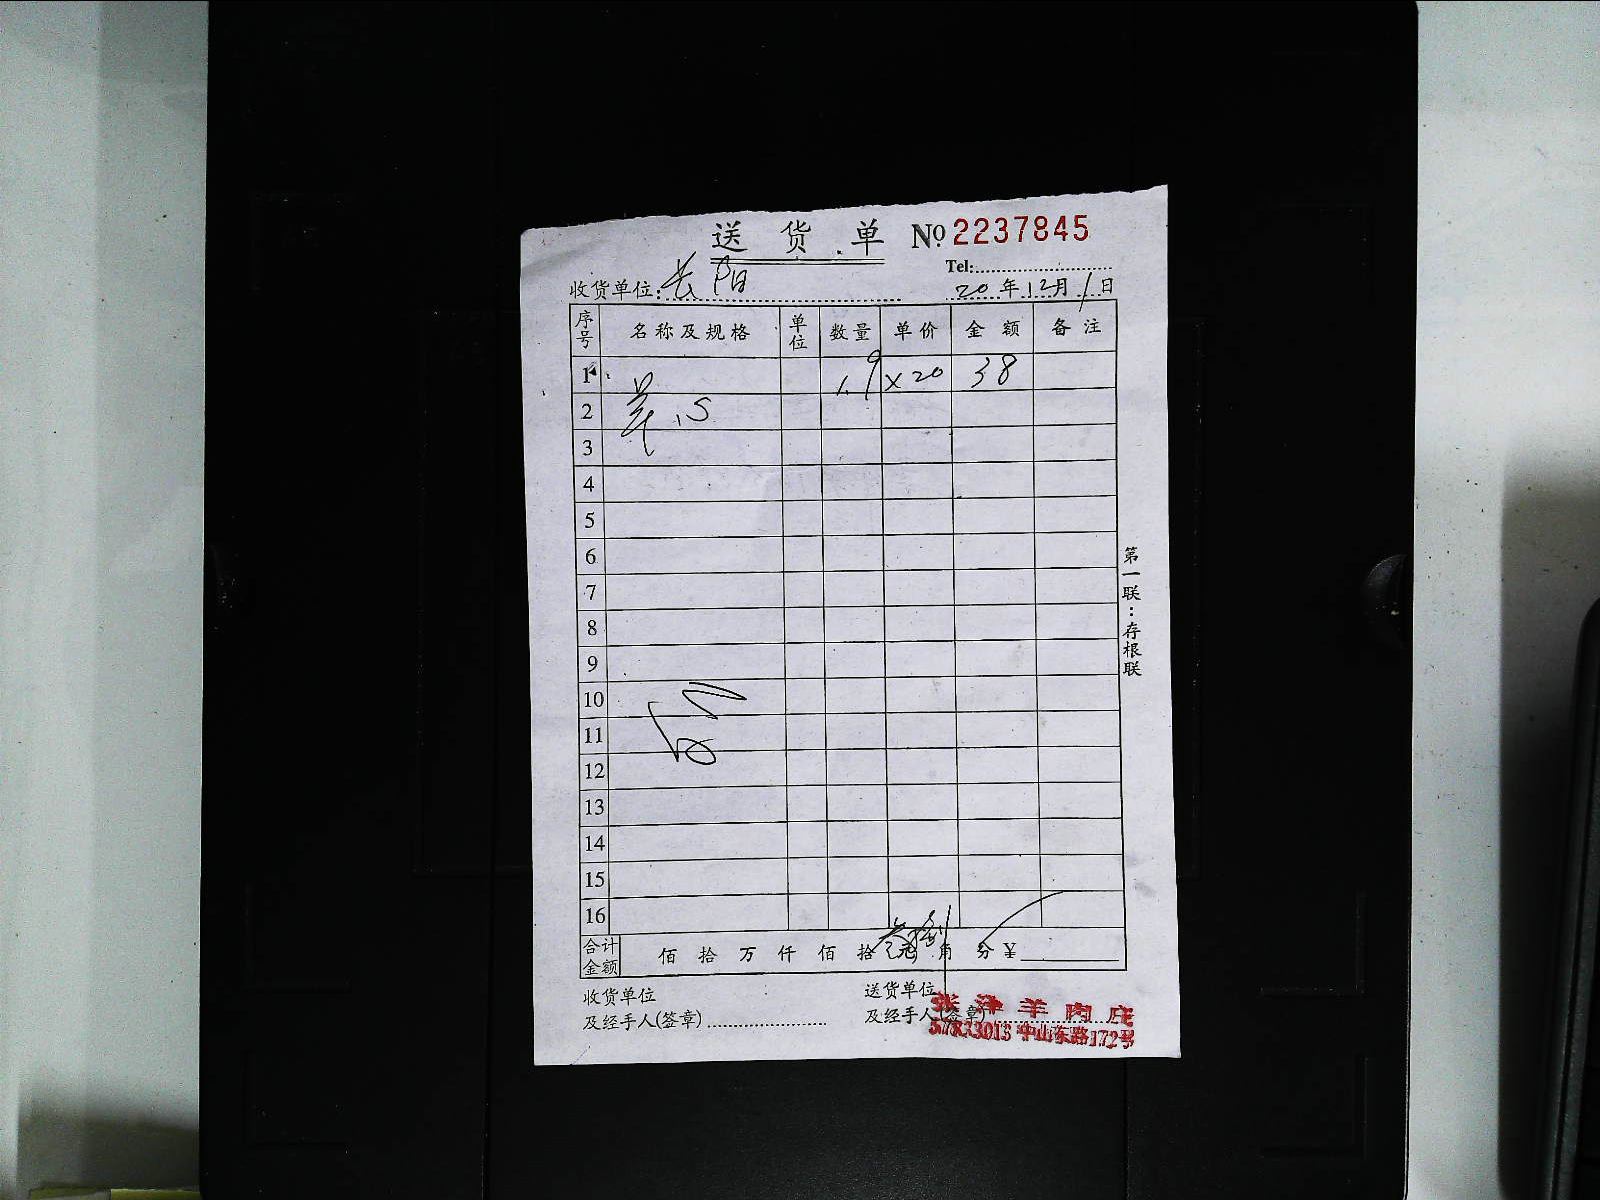 送货单 No 2237845
Tel:
收货单位: 长阳 20年12月1日
序号 名称及规格 单位 数量 单价 金额 备注
1 1.9 ×20 38
2 羊心
3
4
5
6
7
8
9
10
11
12
13
14
15
16
合计金额 佰 拾 万 仟 佰 拾 元 角 分 ¥
收货单位 送货单位
及经手人(签章) 及经手人(签章)
张泽羊肉庄
57833013 中山东路172号
第一联:存根联